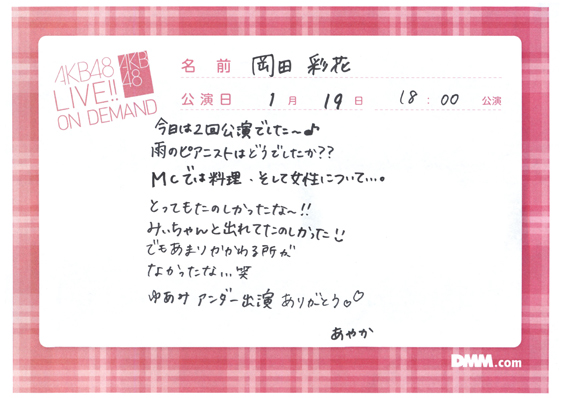 AKB48
LIVE!!
ON DEMAND
AKB
48
名前 岡田 彩花
公演日 1月 19日 18:00 公演
今日は2回公演でした〜♪
雨のピアニストはどうでしたか??
MCでは料理、そして女性について…。
とってもたのしかったな〜!!
みぃちゃんと出れてたのしかった!!
でもあまりかかわる所が
なかったな…笑
ゆあみ アンダー出演 ありがとう♡♡
あやか
DMM.com